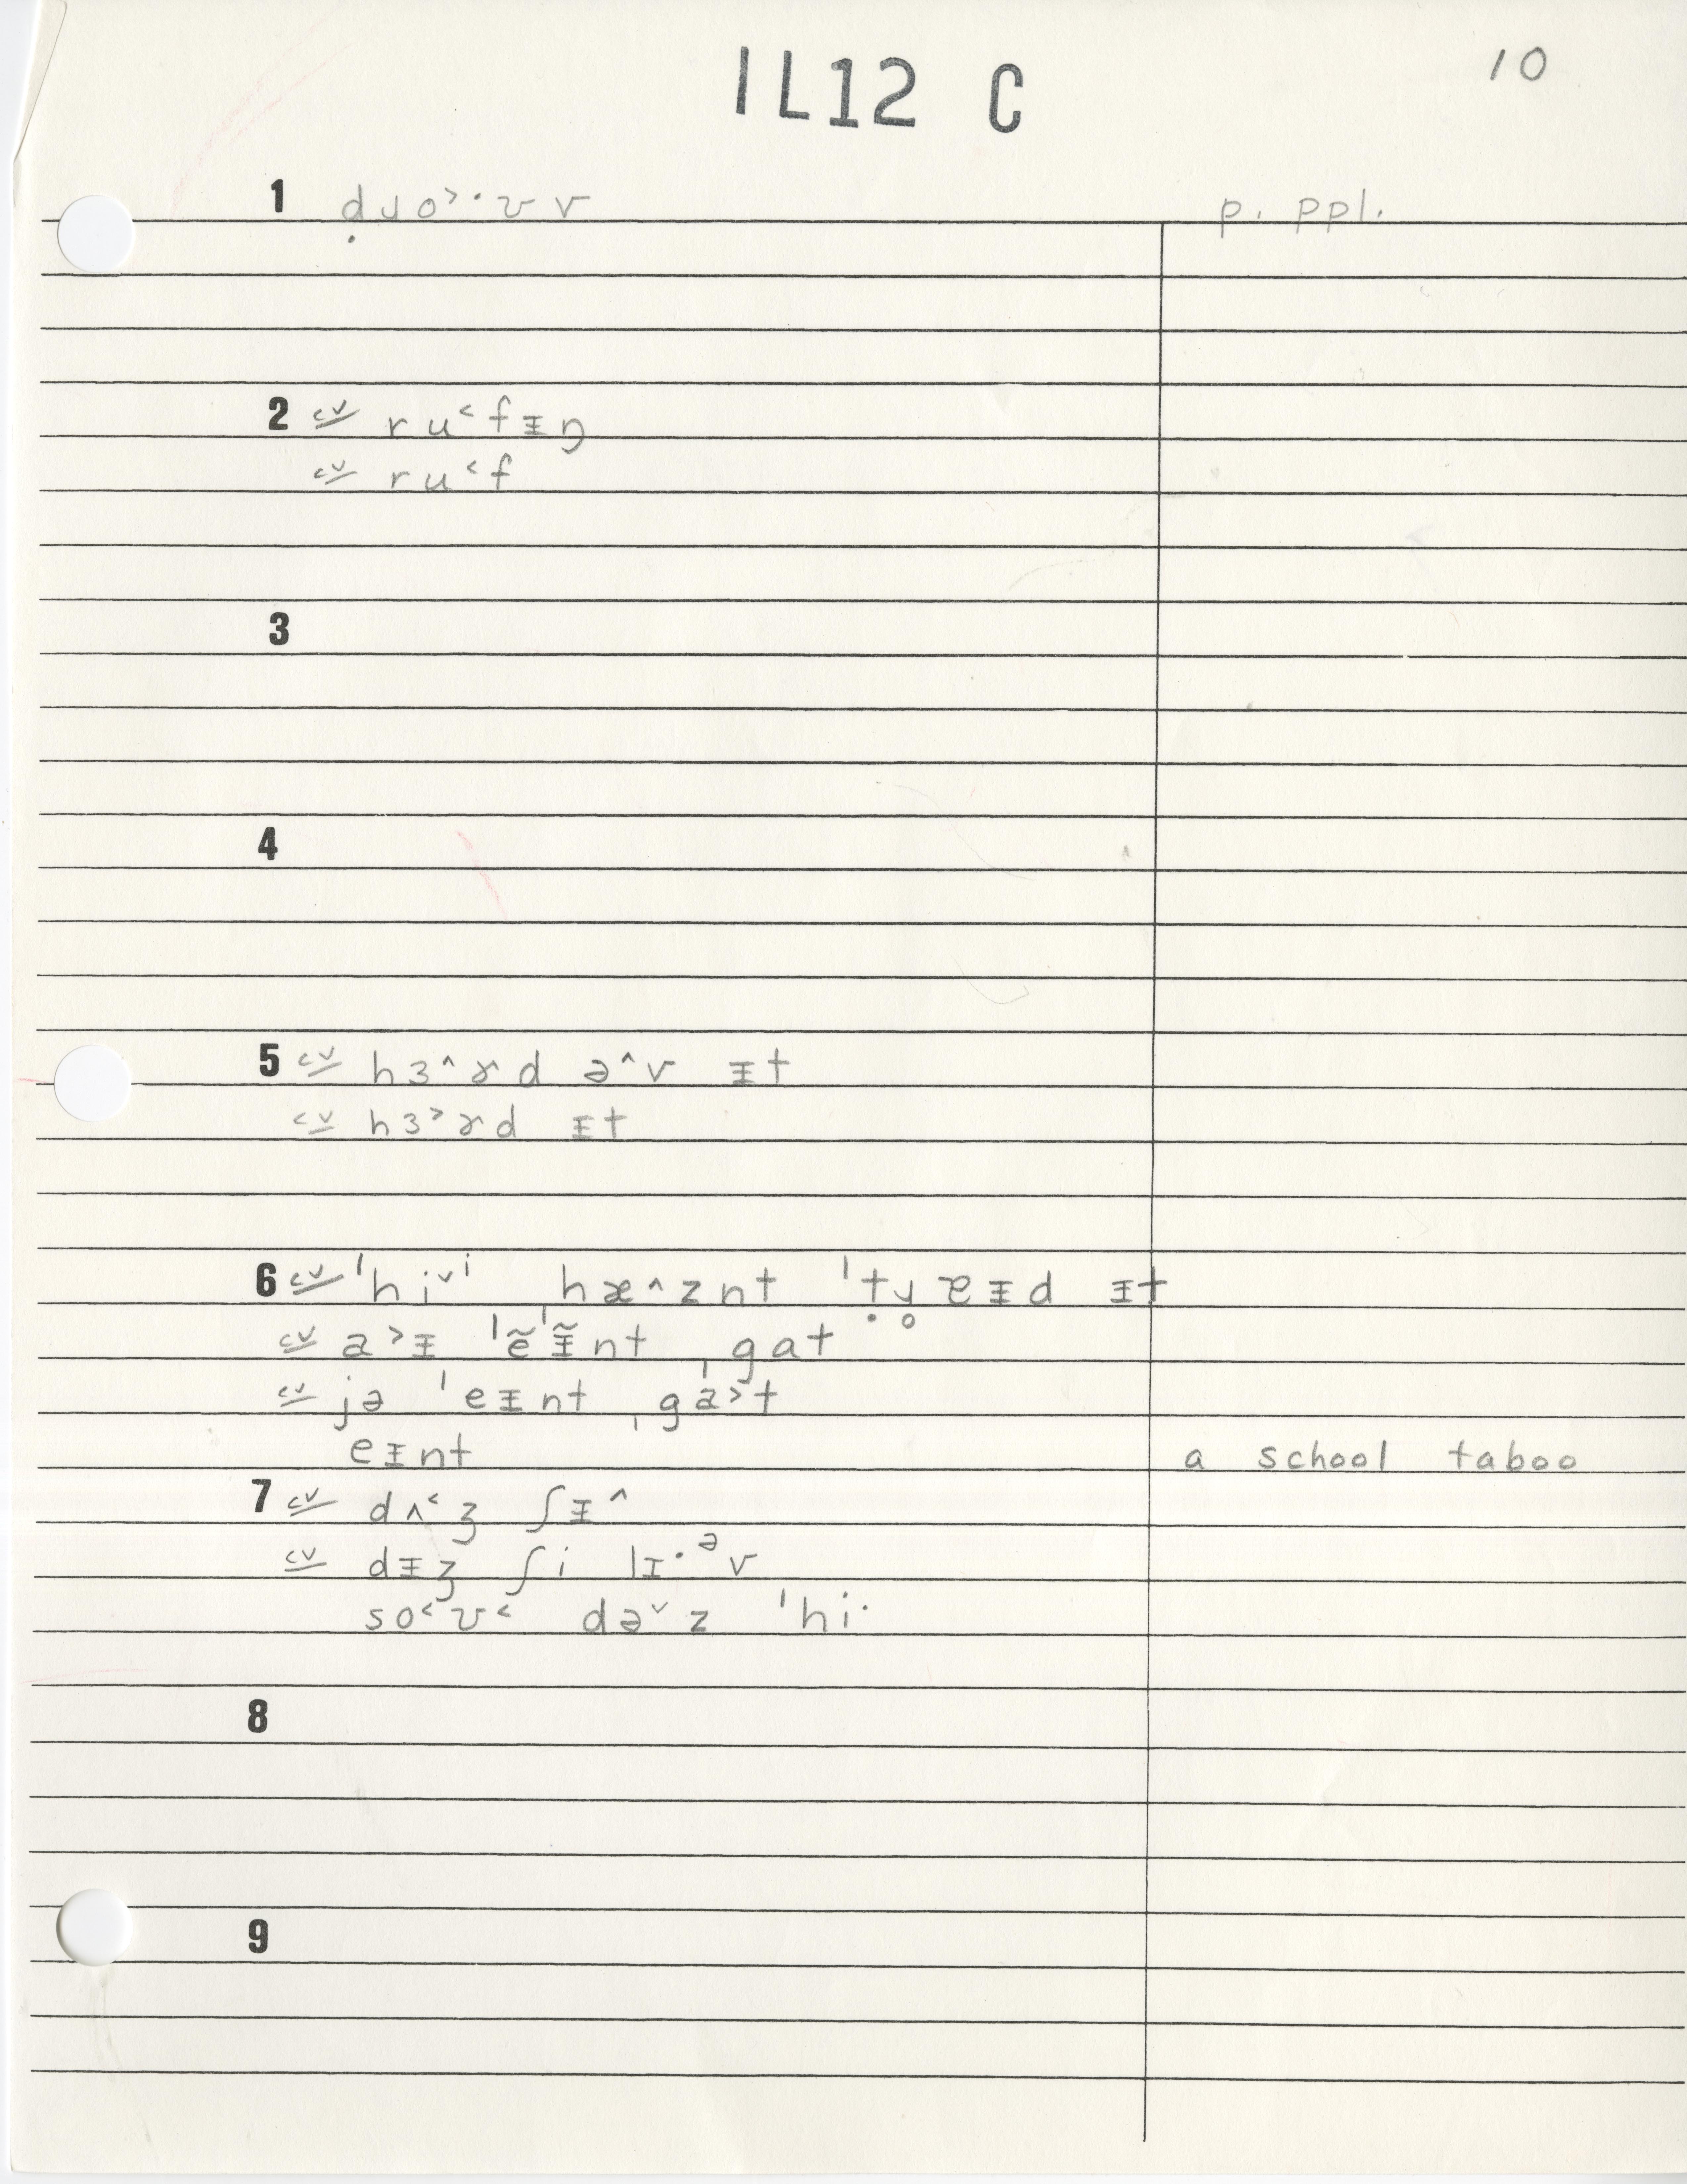 IL12 C
10
1 ḍɹo˃·ʊv p. ppl.
2 cv ru˂fɪ̵ŋ
cv ru˂f
3
4
5 cv hɜ^ɚd ə^v ɪ̵t
cv hɜ˃ɚd ɪ̵t
6 cv ˈhiˇⁱ hæ^znt ˈṭɹ̥ɐɪ̵d ɪ̵t
cv a˃ɪ̵ ˈẽˈɪ̵̃nt ˌgɑt
cv jə ˈeɪ̵nt ˌga˃t
eɪ̵nt a school taboo
7 cv dʌ˂ʒ ʃɪ̵^
cv dɪ̵ʒ ʃi lɪ·ᵊv
so˂ʊ˂ dəˇz ˈhi·
8
9